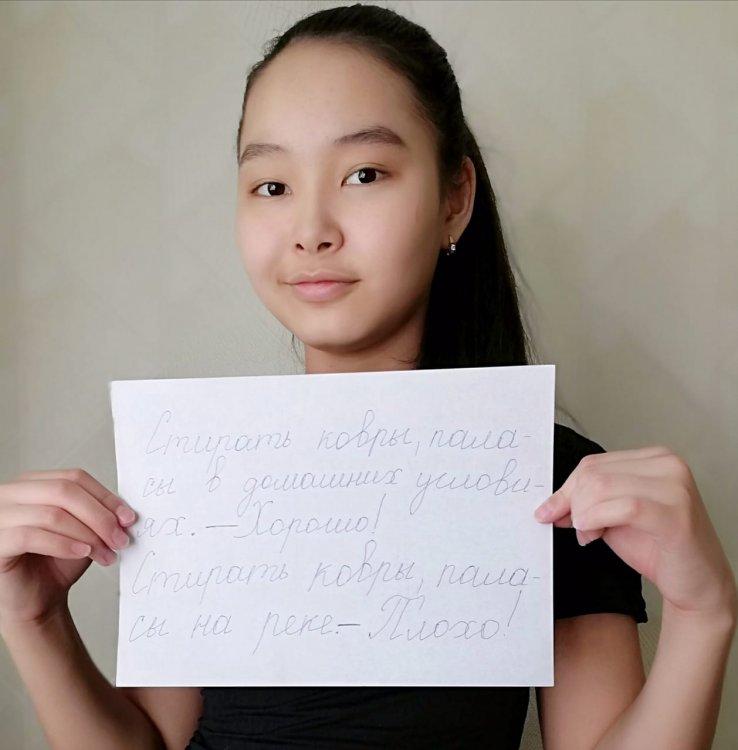 Стирать ковры, пала-
сы в домашних услови-
ях. – Хорошо!
Стирать ковры, пала-
сы на реке. – Плохо!